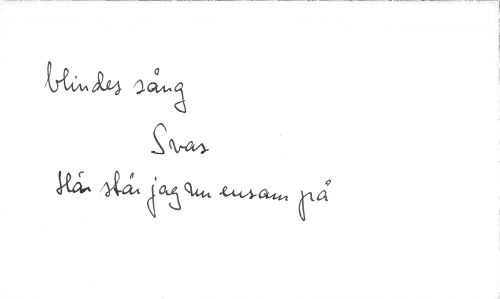 blindes sång
Svas
Här står jag nu ensam på